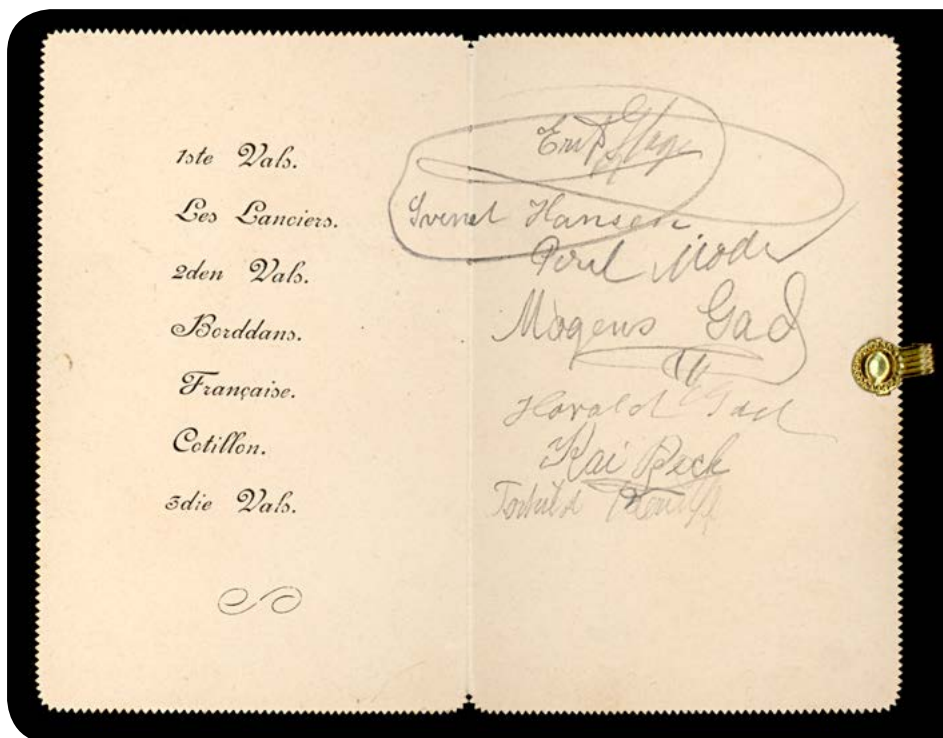 1ste Vals.
Les Lanciers.
2den Vals.
Borddans.
Française.
Cotillon.
3die Vals.
Svend Hansen
Poul
Mogens Gad
Harald Gad
Kai Beck